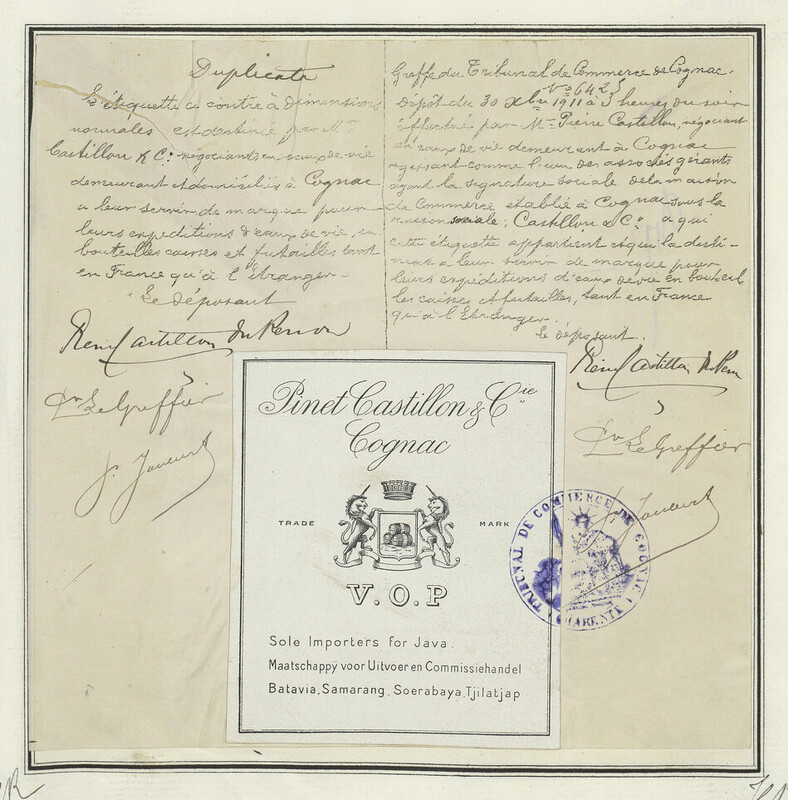 Duplicata
L'étiquette ci contre à dimensions
normales est destinée par Mrs
Castillon & Cº: négociants en eaux de vie
demeurant et domiciliés à Cognac
a leur servir de marque pour
leurs expéditions d'eaux de vie, en
bouteilles caisses et futailles tant
en France qu'à l'Etranger_
Le déposant
René Castillon du Perron
Pr Le Greffier
Greffe du Tribunal de Commerce de Cognac.
Nº 642
Dépôt du 30 Xbre 1911 à 3 heures du soir
éffectué par Mr. Pierre Castillon, négociant
en eaux de vie demeurant à Cognac
agissant comme l'un des associés gérants
ayant la signature sociale de la maison
de Commerce établie à Cognac sous la
raison sociale; Castillon & Cº. a qui
cette étiquette appartient et qui la desti-
nent a leur servir de marque pour
leurs expéditions d'eaux de vie en bouteil
les caisses et futailles, tant en France
qu'à l'Etranger.
Le déposant.
René Castillon du Perron
Pr Le Greffier
Pinet Castillon & Cie
Cognac
TRADE MARK
V.O.P
Sole Importers for Java.
Maatschappy voor Uitvoer en Commissiehandel
Batavia, Samarang, Soerabaya, Tjilatjap
TRIBUNAL DE COMMERCE DE COGNAC
(CHARENTE)